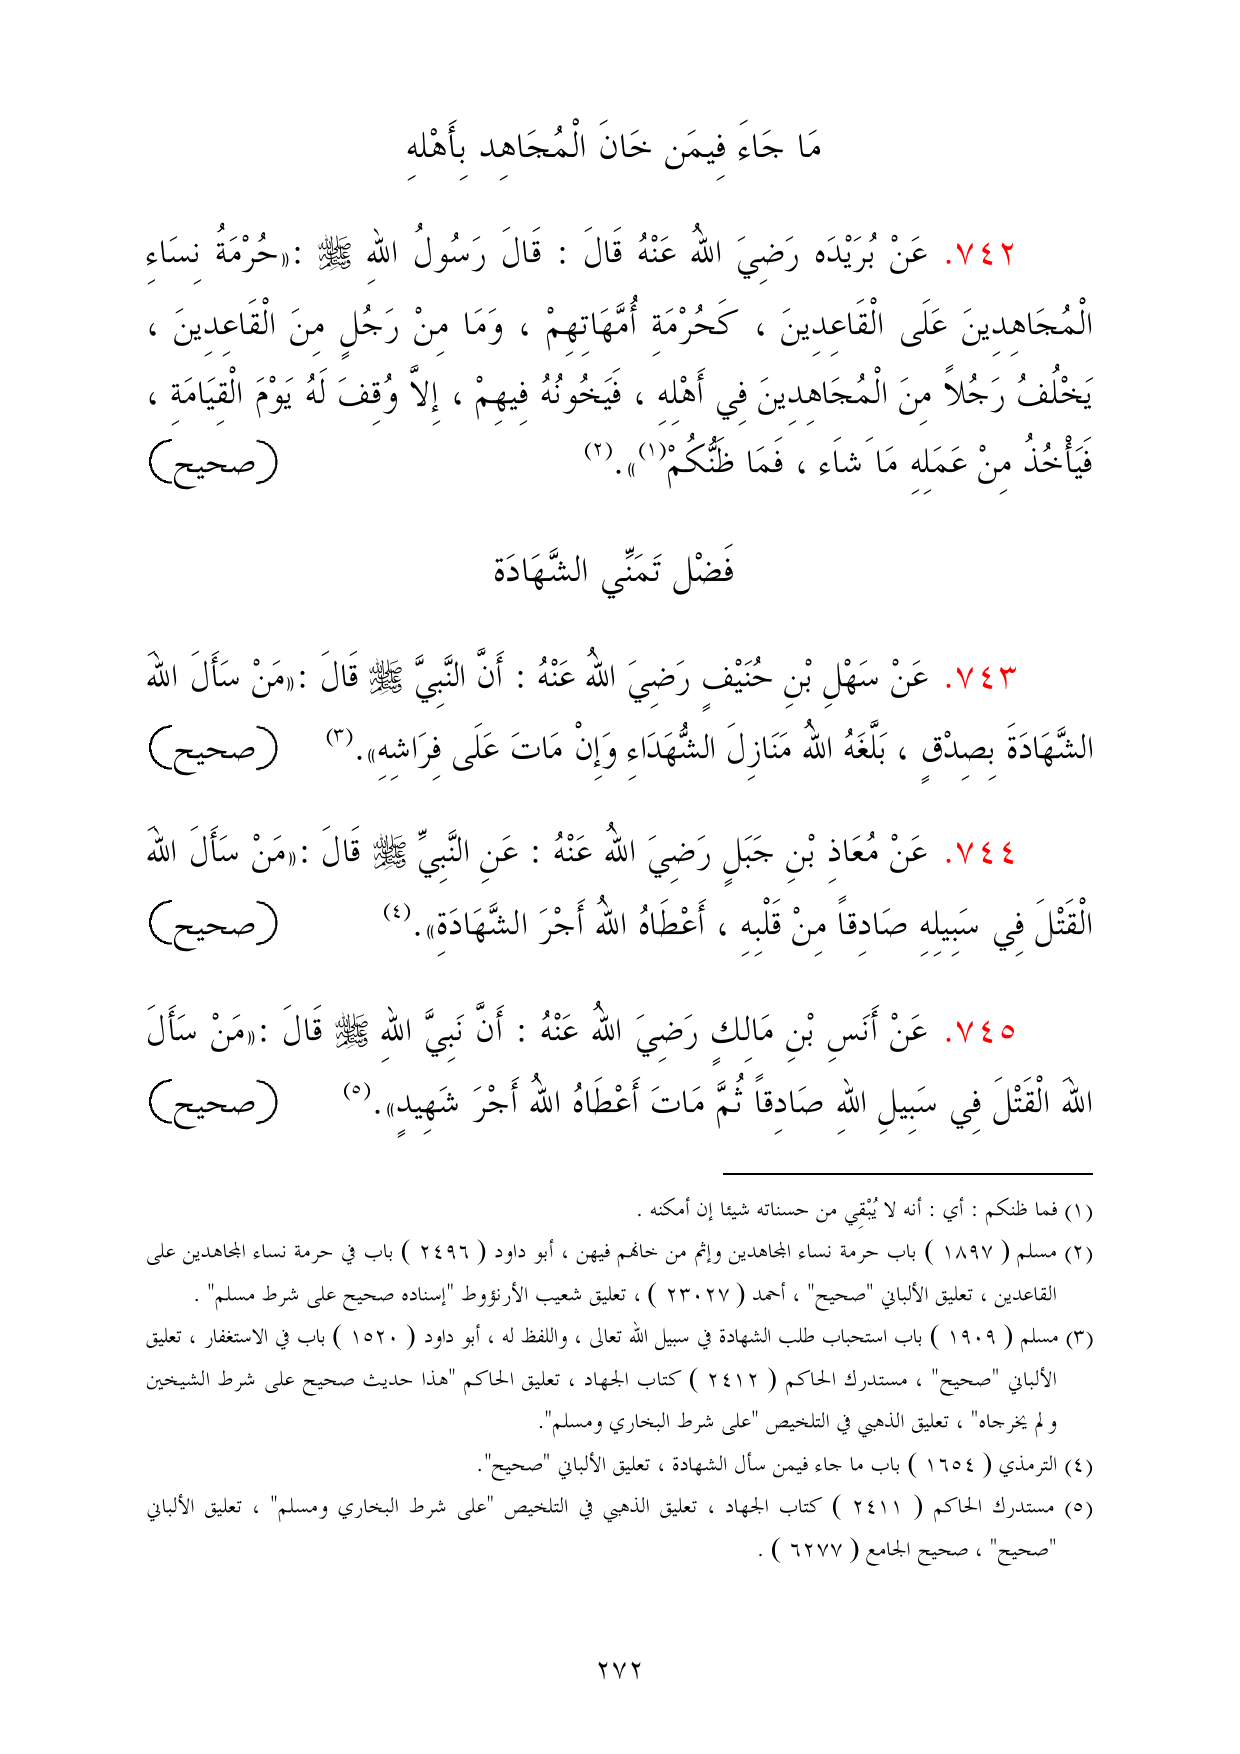 مَا جَاءَ فِيمَن خَانَ الْمُجَاهِدِ بِأَهْلِهِ
٧٤٢. عَنْ بُرَيْدَه رَضِيَ اللهُ عَنْهُ قَالَ : قَالَ رَسُولُ اللهِ ﷺ :«حُرْمَةُ نِسَاءِ
الْمُجَاهِدِينَ عَلَى الْقَاعِدِينَ ، كَحُرْمَةِ أُمَّهَاتِهِمْ ، وَمَا مِنْ رَجُلٍ مِنَ الْقَاعِدِينَ ،
يَخْلُفُ رَجُلاً مِنَ الْمُجَاهِدِينَ فِي أَهْلِهِ ، فَيَخُونُهُ فِيهِمْ ، إِلاَّ وُقِفَ لَهُ يَوْمَ الْقِيَامَةِ ،
فَيَأْخُذُ مِنْ عَمَلِهِ مَا شَاَء ، فَمَا ظَنُّكُمْ(١)».(٢) (صحيح)
فَضْل تَمَنِّي الشَّهَادَة
٧٤٣. عَنْ سَهْلِ بْنِ حُنَيْفٍ رَضِيَ اللهُ عَنْهُ : أَنَّ النَّبِيَّ ﷺ قَالَ :«مَنْ سَأَلَ اللهَ
الشَّهَادَةَ بِصِدْقٍ ، بَلَّغَهُ اللهُ مَنَازِلَ الشُّهَدَاءِ وَإِنْ مَاتَ عَلَى فِرَاشِهِ».(٣) (صحيح)
٧٤٤. عَنْ مُعَاذِ بْنِ جَبَلٍ رَضِيَ اللهُ عَنْهُ : عَنِ النَّبِيِّ ﷺ قَالَ :«مَنْ سَأَلَ اللهَ
الْقَتْلَ فِي سَبِيلِهِ صَادِقاً مِنْ قَلْبِهِ ، أَعْطَاهُ اللهُ أَجْرَ الشَّهَادَةِ».(٤) (صحيح)
٧٤٥. عَنْ أَنَسِ بْنِ مَالِكٍ رَضِيَ اللهُ عَنْهُ : أَنَّ نَبِيَّ اللهِ ﷺ قَالَ :«مَنْ سَأَلَ
اللهَ الْقَتْلَ فِي سَبِيلِ اللهِ صَادِقاً ثُمَّ مَاتَ أَعْطَاهُ اللهُ أَجْرَ شَهِيدٍ».(٥) (صحيح)
(١) فما ظنكم : أي : أنه لا يُبْقِي من حسناته شيئا إن أمكنه .
(٢) مسلم ( ١٨٩٧ ) باب حرمة نساء المجاهدين وإثم من خانهم فيهن ، أبو داود ( ٢٤٩٦ ) باب في حرمة نساء المجاهدين على
القاعدين ، تعليق الألباني "صحيح" ، أحمد ( ٢٣٠٢٧ ) ، تعليق شعيب الأرنؤوط "إسناده صحيح على شرط مسلم" .
(٣) مسلم ( ١٩٠٩ ) باب استحباب طلب الشهادة في سبيل الله تعالى ، واللفظ له ، أبو داود ( ١٥٢٠ ) باب في الاستغفار ، تعليق
الألباني "صحيح" ، مستدرك الحاكم ( ٢٤١٢ ) كتاب الجهاد ، تعليق الحاكم "هذا حديث صحيح على شرط الشيخين
و لم يخرجاه" ، تعليق الذهبي في التلخيص "على شرط البخاري ومسلم".
(٤) الترمذي ( ١٦٥٤ ) باب ما جاء فيمن سأل الشهادة ، تعليق الألباني "صحيح".
(٥) مستدرك الحاكم ( ٢٤١١ ) كتاب الجهاد ، تعليق الذهبي في التلخيص "على شرط البخاري ومسلم" ، تعليق الألباني
"صحيح" ، صحيح الجامع ( ٦٢٧٧ ) .
٢٧٢